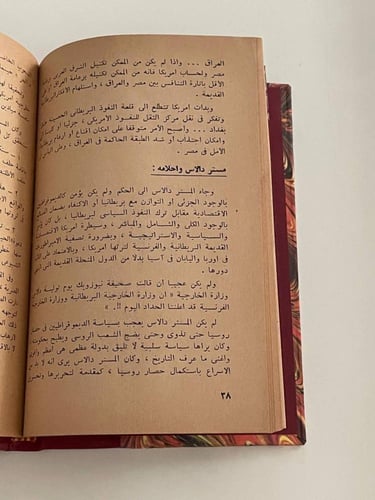 العراق ... واذا لم يكن من الممكن تكتيل الشرق العربي
مصر ولحساب امريكا فانه من الممكن تكتيله بزعامة العراق
بالآثارة التنافس بين مصر والعراق ، واستلهام الافكار
القديمة .
وبدأت امريكا تتطلع الى قلعة النفوذ البريطاني
وتفكر في نقل مركز الثقل للنفوذ الامريكي ، جزئيا او
بغداد ... واصبح الامر متوقفا على امكان اقناع او ارغام
العراق ، وامكان اجتذاب او شد الطبقة الحاكمة في
الأمل في مصر .
مستر دالاس واحلامه :
وجاء المستر دالاس الى الحكم ولم يكن يؤمن
بالوجود الجزئي او التوازن مع بريطانيا او الاكتفاء بضمان
الاقتصادية مقابل ترك النفوذ السياسي لبريطانيا
بالوجود الكلي والشامل والمباشر ، وبالسيطرة
والسياسية والاستراتيجية ، وبضرورة تصفية
القديمة البريطانية والفرنسية لترثها امريكا ، وبالاعتماد على
في اوربا واليابان في آسيا بدلا من الدول المنحلة القديمة التي
دورها .
ولم يكن عجيبا أن قالت صحيفة نيوزويك يوم توليه
وزارة الخارجية « ان وزارة الخارجية البريطانية ووزارة
الفرنسية قد اعلنتا الحداد اليوم !! » .
لم يكن المستر دالاس يعجب بسياسة الديموقراطيين
روسيا حتى تذوى وحتى يضج الشعب الروسي ويطيح
وكان يراها سياسة سلبية لا تليق بدولة عظمى هي أقوى
واغنى ما عرف التاريخ ، وكان المستر دالاس يرى انه لا بد
الاسراع باستكمال حصار روسيا ، كمقدمة لتحريرها
٣٨